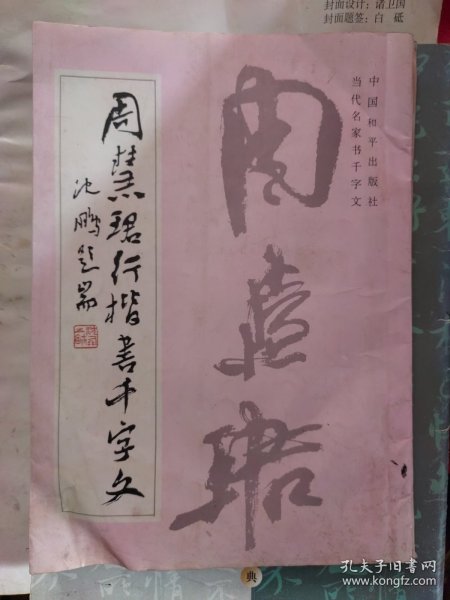 封面设计：诸卫国
封面题签：白 砥
中国和平出版社
当代名家书千字文
周慧珺
周慧珺行楷书千字文
沈鹏题耑
典
孔夫子旧书网
www.kongfz.com